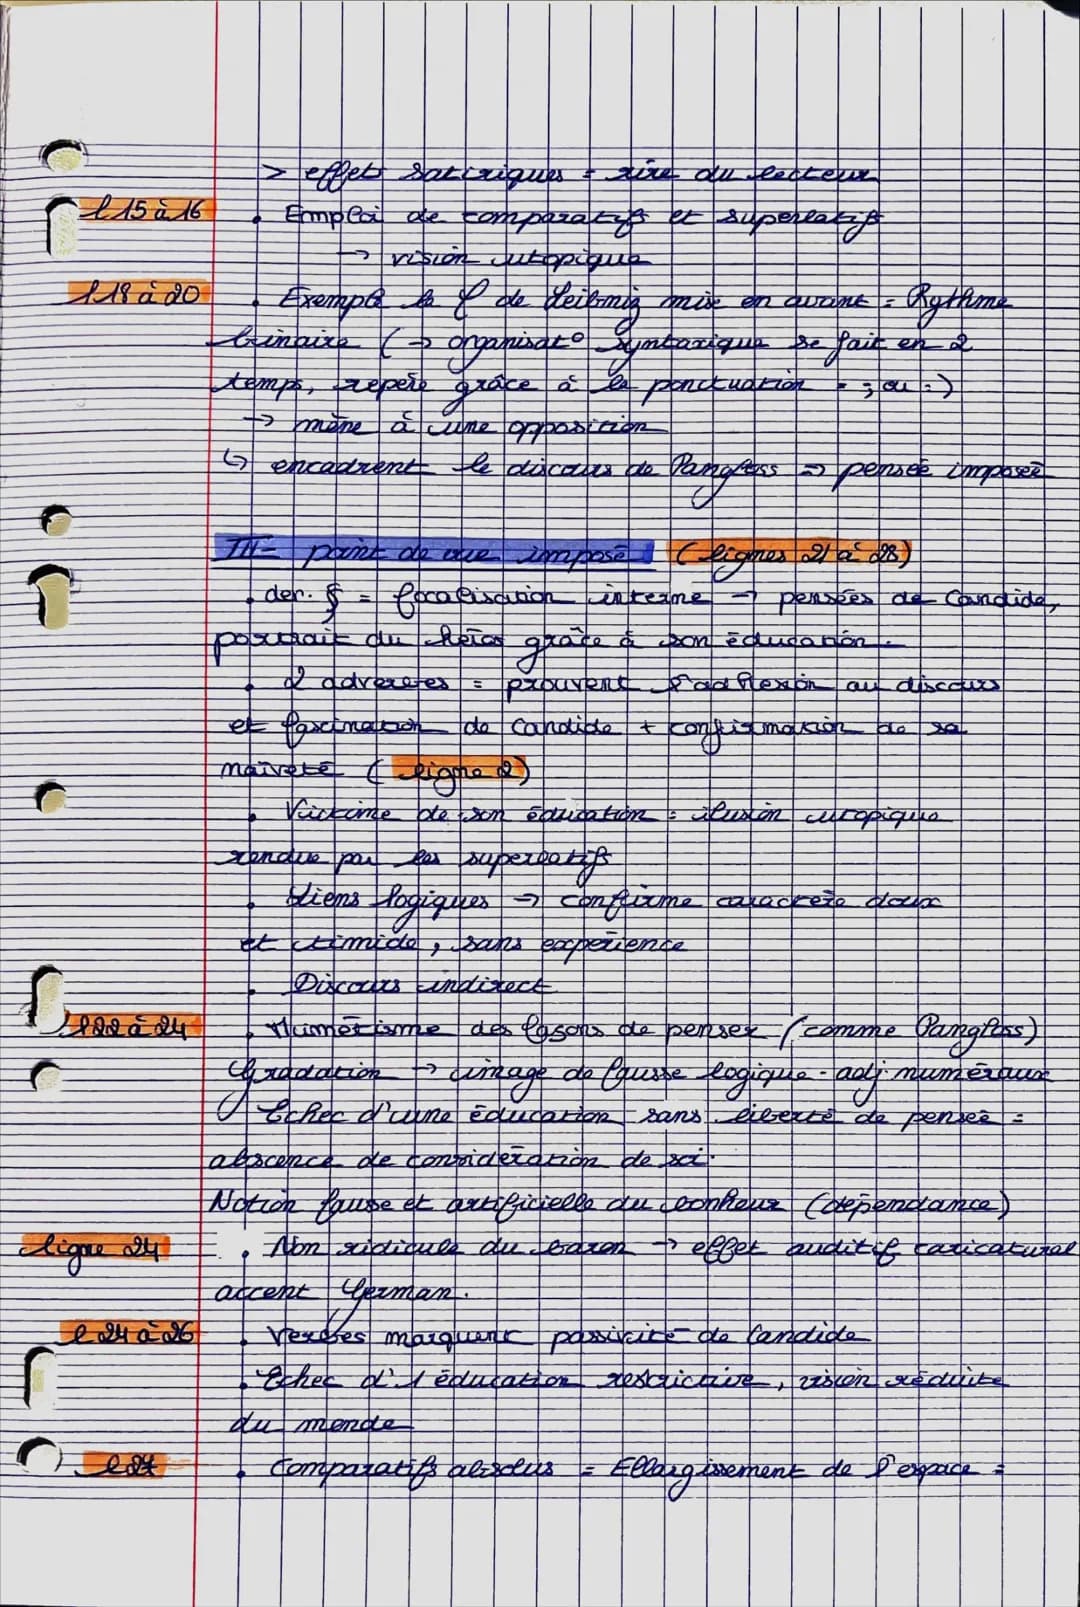 > effets satiriques = rire du lecteur
l 15 à 16 . Emploi de comparatifs et superlatifs
→ vision utopique
l 18 à 20 . Exemple la φ de Leibniz mise en avant = Rythme
binaire (→ organisat° syntaxique se fait en 2
temps, repéré grâce à la ponctuation - ; ou :)
→ mène à une opposition
↳ encadrent le discours de Pangloss => pensée imposée
III- point de vue imposé (lignes 21 à 28)
. der. § = focalisation interne → pensées de Candide,
portrait du héros grâce à son éducation.
. 2 adverbes = prouvent au discours
et fascination de Candide + confirmation de sa
naïveté (ligne 2)
. Victime de son éducation = ilusion utopique
rendue par les superlatifs
. Liens logiques → confirme caractère doux
et timide, sans expérience
. Discours indirect
l 22 à 24 . des façons de penser (comme Pangloss)
Gradation → image de fausse logique - adj numéraux
Echec d'une éducation sans liberté de pensée =
abscence de considération de soi.
Notion fausse et artificielle du bonheur (dépendance)
ligne 24 . Nom ridicule du baron → effet auditif caricatural
accent German.
l 24 à 26 . Verbes marquent passivité de Candide
. Echec d'1 éducation restrictive, vision réduite
du monde
l 27 . Comparatifs absolus = Ellargissement de l'espace =